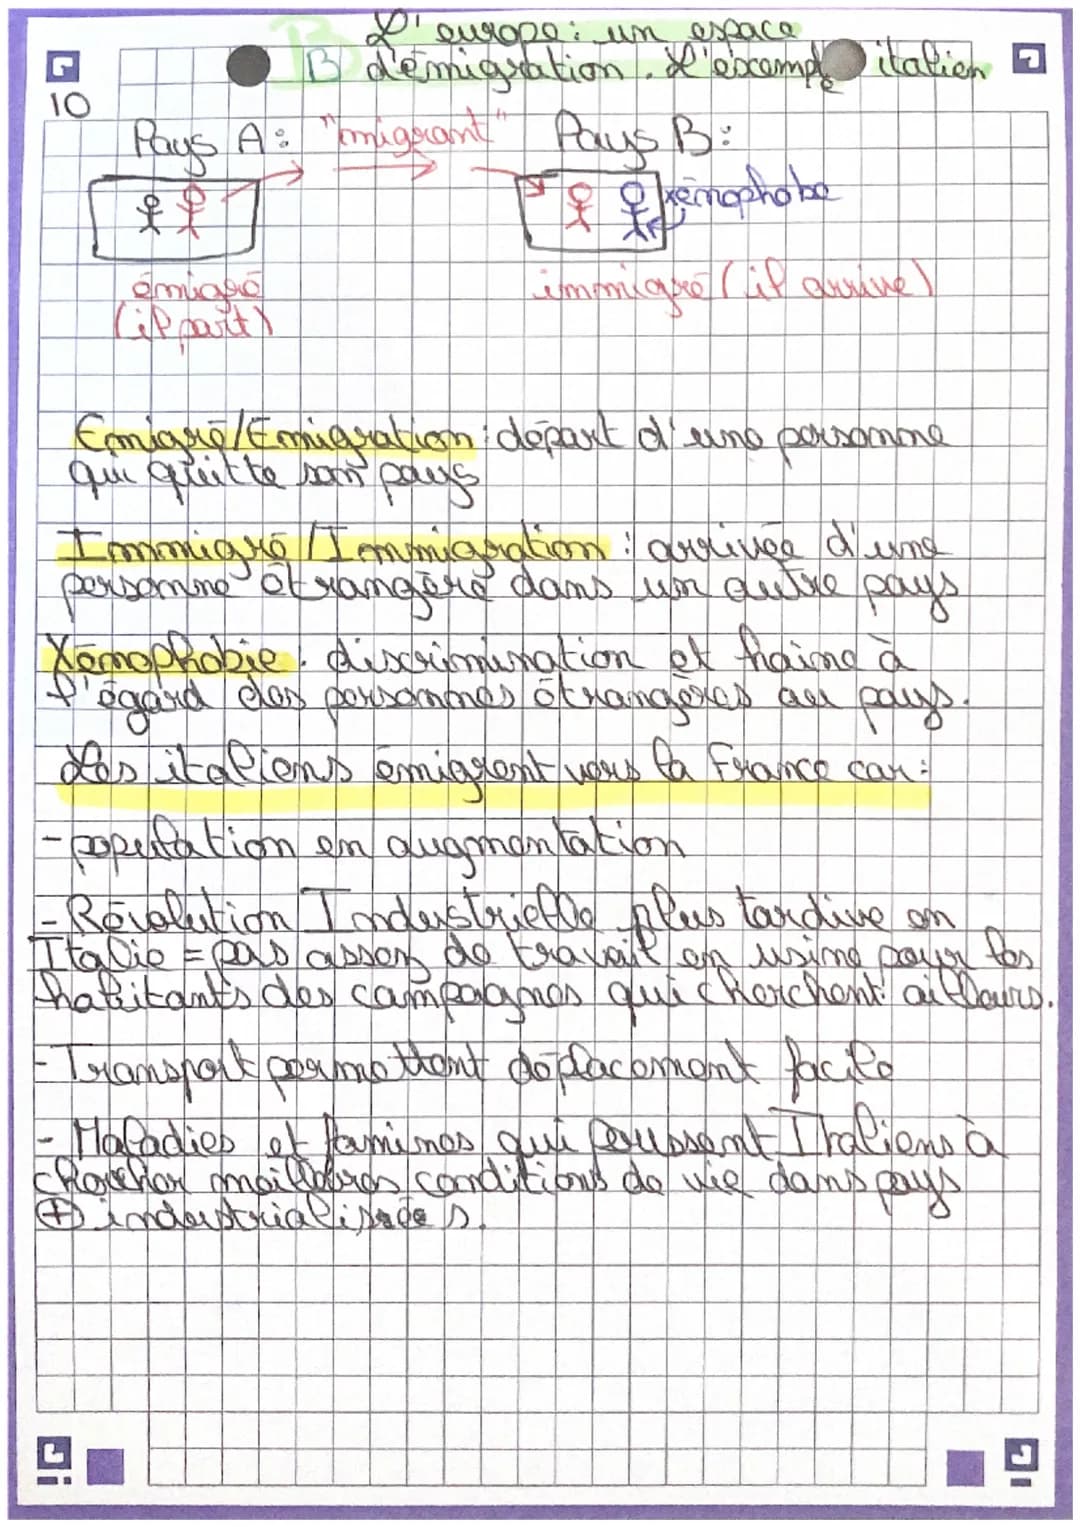 L'europe: un espace
B d'émigration. L'exemple italien
10
Pays A: "migrant" Pays B:
xénophobe
émigré immigré (il arrive)
(il part)
Emigré/Emigration: départ d'une personne
qui quitte son pays
Immigré/Immigration: arrivée d'une
personne étrangère dans un autre pays
Xénophobie: discrimination et haine à
l'égard des personnes étrangères au pays.
Les italiens émigrent vers la France car:
- population en augmentation
- Révolution Industrielle plus tardive en
Italie = pas assez de travail en usine pour les
habitants des campagnes qui cherchent ailleurs.
- Transport permettent déplacement facile
- Maladies et famines qui poussent Italiens à
chercher meilleures conditions de vie dans pays
+ industrialisées.